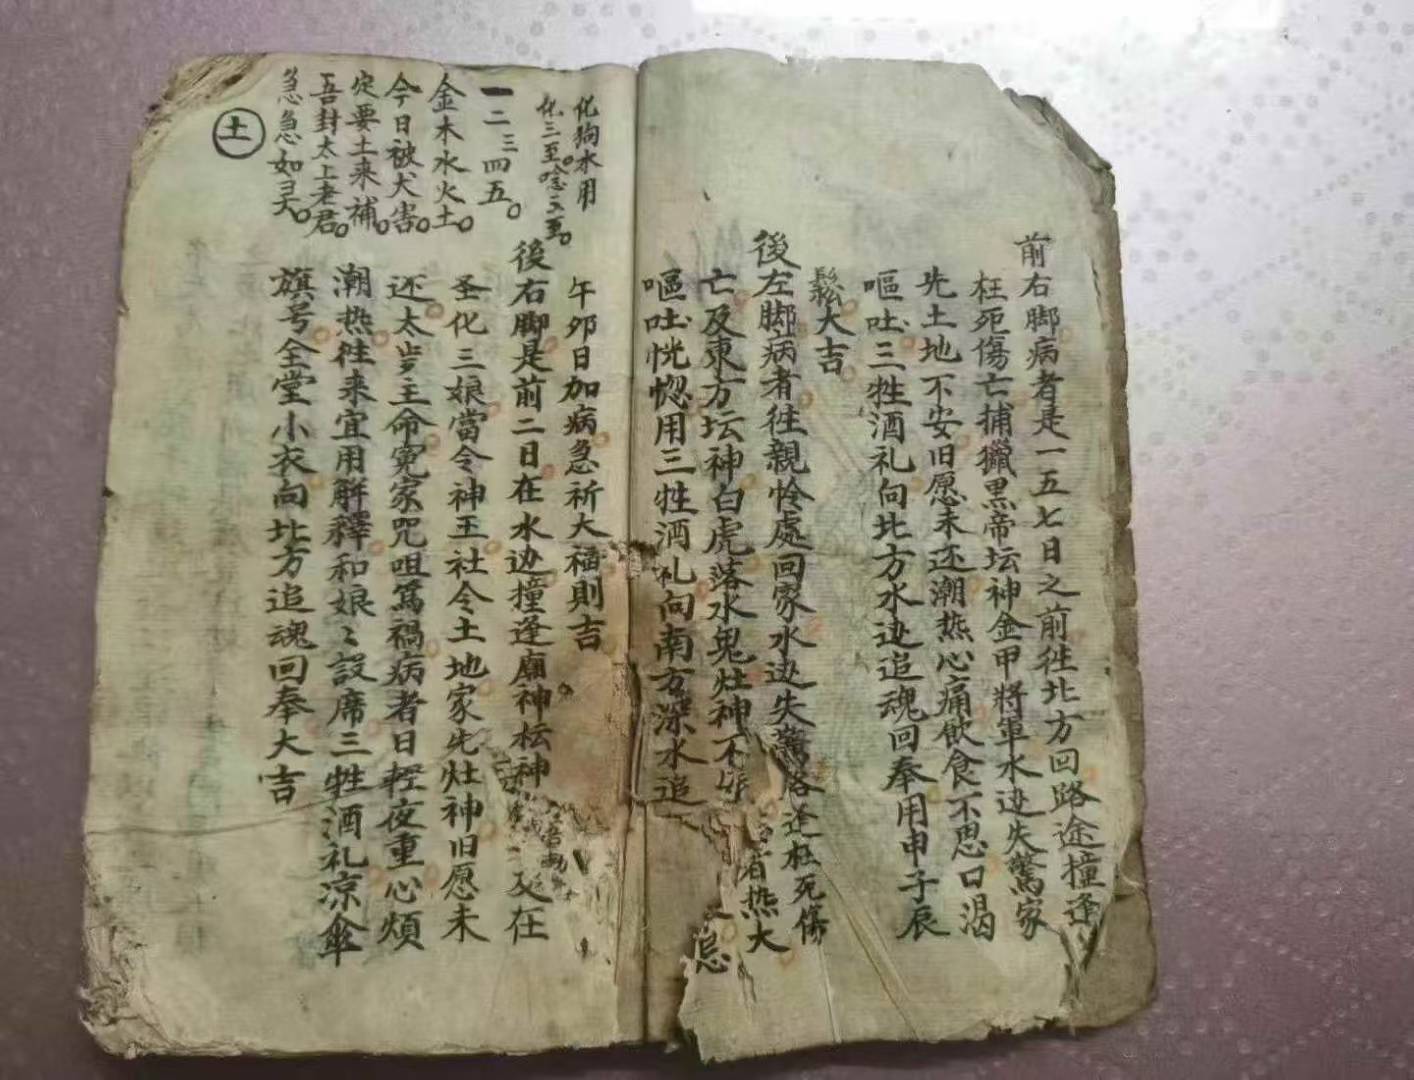 前右脚病者是一五七日之前徃北方回路途撞逢
枉死傷亡捕獵黑帝坛神金甲將軍水边失驚家
先土地不安旧愿未还潮热心痛飲食不思口渴
嘔吐三牲酒礼向北方水边追魂回奉用申子辰
鬆大吉
後左脚病者徃親怜處回家水边失驚路逢枉死傷
亡及東方坛神白虎落水鬼灶神不 者热大
嘔吐恍惚用三牲酒礼向南方深水追
午夘日加病急祈大福則吉
後右脚是前二日在水边撞逢廟神坛神 又在
圣化三娘當令神王社令土地家先灶神旧愿未
还太岁主命寃家咒咀為禍病者日輕夜重心煩
潮热徃来宜用解釋和娘〻設席三牲酒礼凉傘
旗号全堂小衣向北方追魂回奉大吉
化狗水用
化三至唸三至。
一二三四五。
金木水火土。
今日被犬害。
定要土来補。
吾封太上老君。
急急如灵。
土